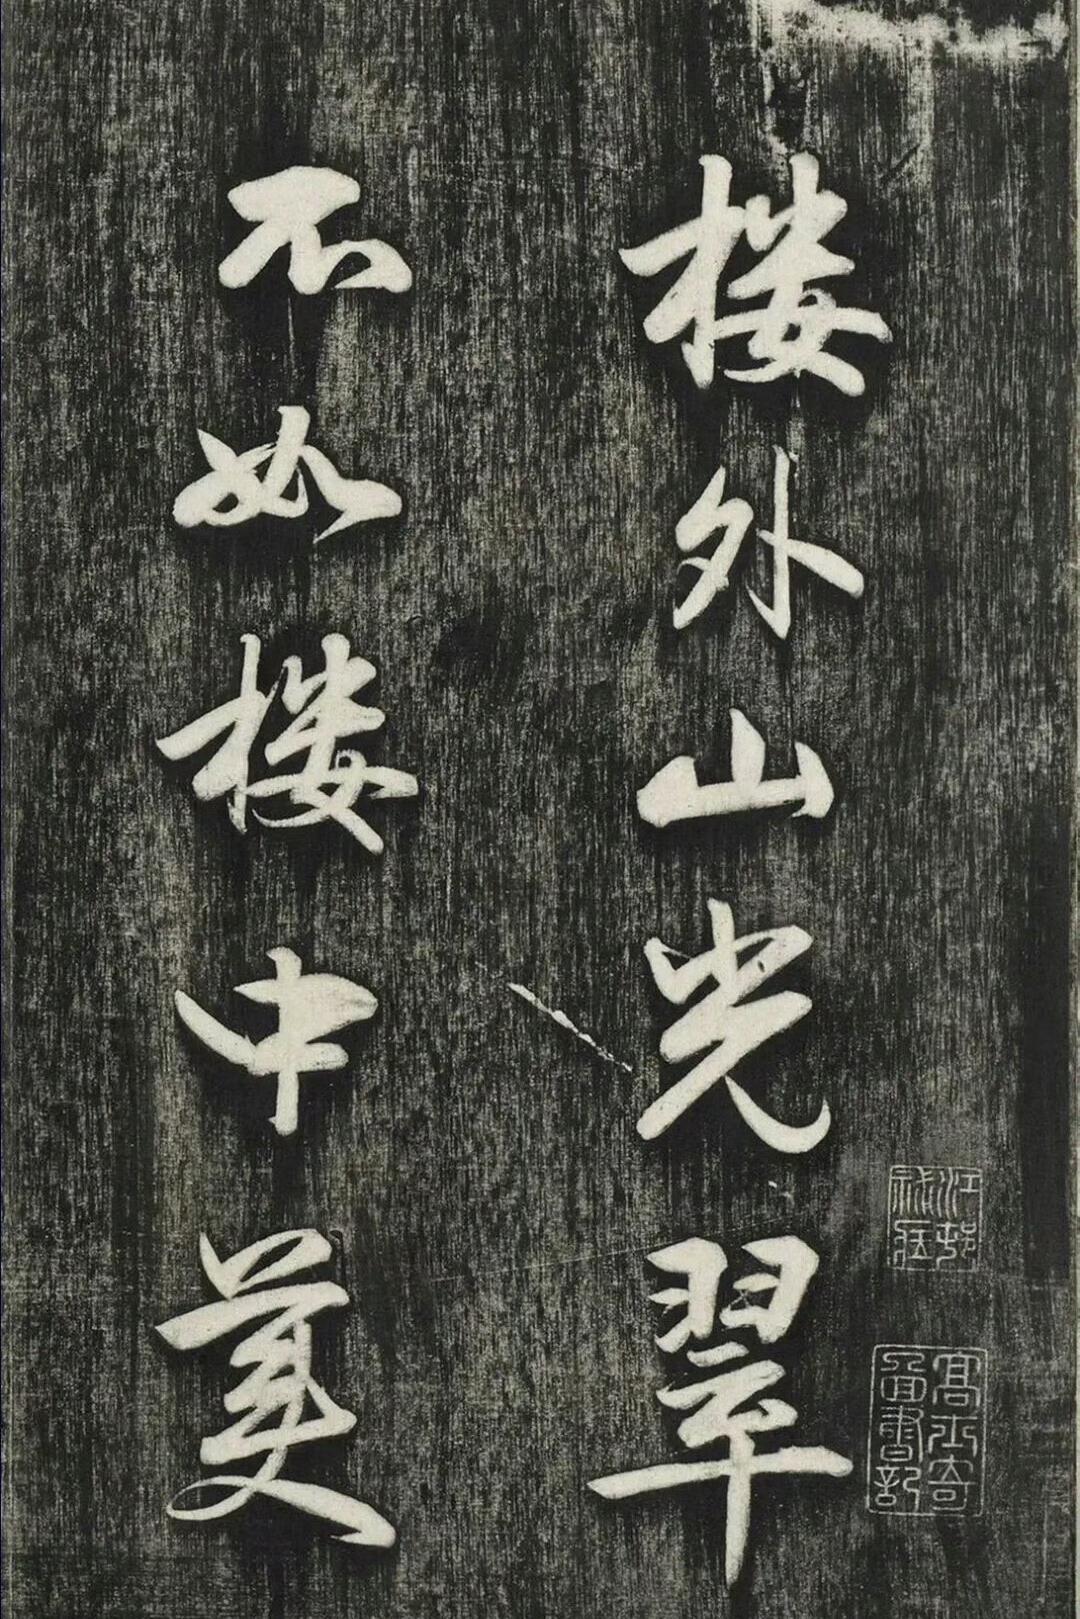 楼外山光翠
不如楼中美